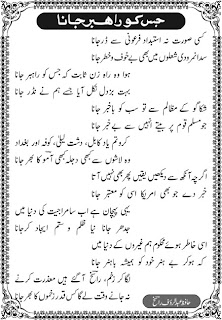 جس کو راہبر جانا
کسی صورت نہ استبدادِ فرعونی سے ڈر جانا
سدا نمرودی شعلوں میں بھی بے خوف و خطر جانا
ہوا وہ راہ زن ثابت کہ جس کو راہبر جانا
بہت بزدل نکل آیا جسے ہم نے نڈر جانا
شکاگو کے مظالم سے تو سب کو باخبر جانا
جو مسلم قوم پر بیتے انہیں سے بے خبر جانا
کرو تم یاد کابل، دشتِ لیلیٰ، کوفہ اور بغداد
وہ لاشوں سے بھی دجلہ بھی آمو کا بھر جانا
اگرچہ آنکھ سے دیکھیں یقیں پھر بھی نہیں آتا
خبر دے جو بھی امریکا اسی کو معتبر جانا
یہی پہچان ہے اب سامراجیت کی دنیا میں
جدھر جانا نیا ظلم و ستم ایجاد کر جانا
اسی خاطر ہوئے محکوم ہم غیروں کے دنیا میں
کہ ہو کر بے ہنر خود کو ہمیشہ باہنر جانا
لگا کر زخم، راسخؔ آ گئے ہیں معذرت کرنے
نہ جانے وقت لے گا کس قدر زخموں کا بھر جانا
حافظ عبدالرؤف راسخ